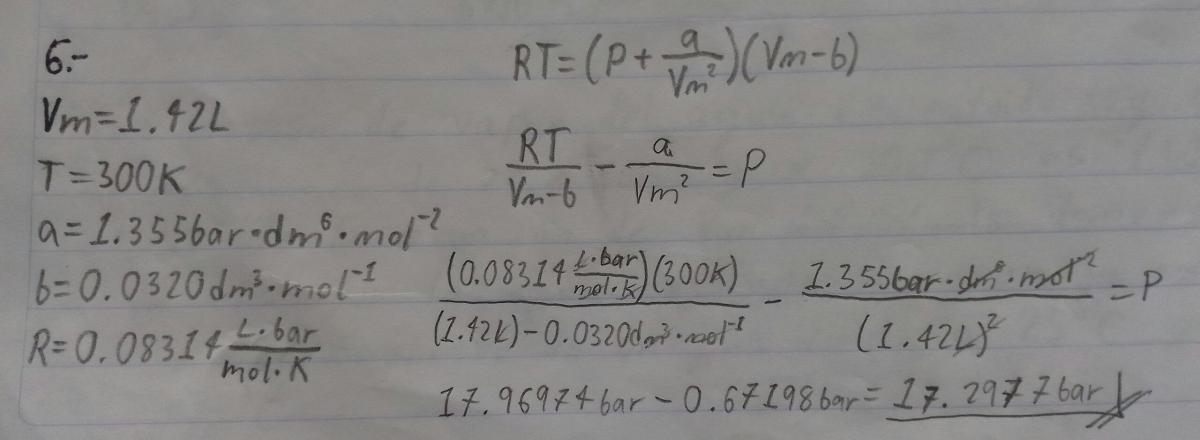 6.-
Vm=1.42L
T=300K
a=1.355bar·dm⁶·mol⁻²
b=0.0320dm³·mol⁻¹
R=0.08314 L·bar/mol·K
RT=(P+a/Vm²)(Vm-b)
RT/Vm-b - a/Vm² = P
(0.08314 L·bar/mol·K)(300K)/(1.42L)-0.0320dm³·mol⁻¹ - 1.355bar·dm⁶·mol⁻²/(1.42L)² = P
17.96974bar - 0.67198bar = 17.2977bar